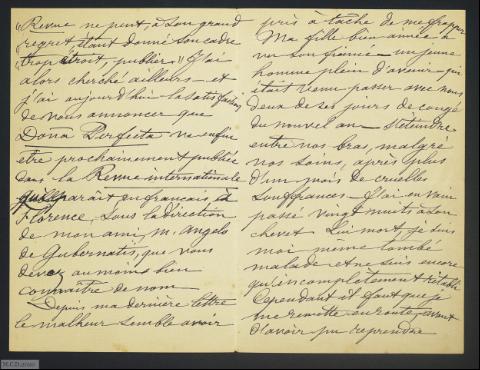 "Revue ne peut, à son grand
regret, étant donné son cadre
trop étroit, publier." J'ai
alors cherché ailleurs — et
j'ai aujourd'hui la satisfaction
de vous annoncer que
Doña Perfecta va enfin
être prochainement publiée
dans la Revue internationale
qui paraît en français, à
Florence, sous la direction
de mon ami, M. Angelo
de Gubernatis, que vous
devez au moins bien
connaître de nom —
Depuis ma dernière lettre
le malheur semble avoir
pris à tâche de me frapper
Ma fille bien aimée a
vu son fiancé — un jeune
homme plein d'avenir qui
était venu passer avec nous
deux de ses jours de congé
du nouvel an — s'éteindre
entre nos bras, malgré
nos soins, après plus
d'un mois de cruelles
souffrances — J'ai en vain
passé vingt nuits à son
chevet. Lui mort, je suis
moi même tombé
malade et ne suis encore
qu'incomplètement rétabli
Cependant il faut que je
me remette en route, avant
d'avoir pu reprendre